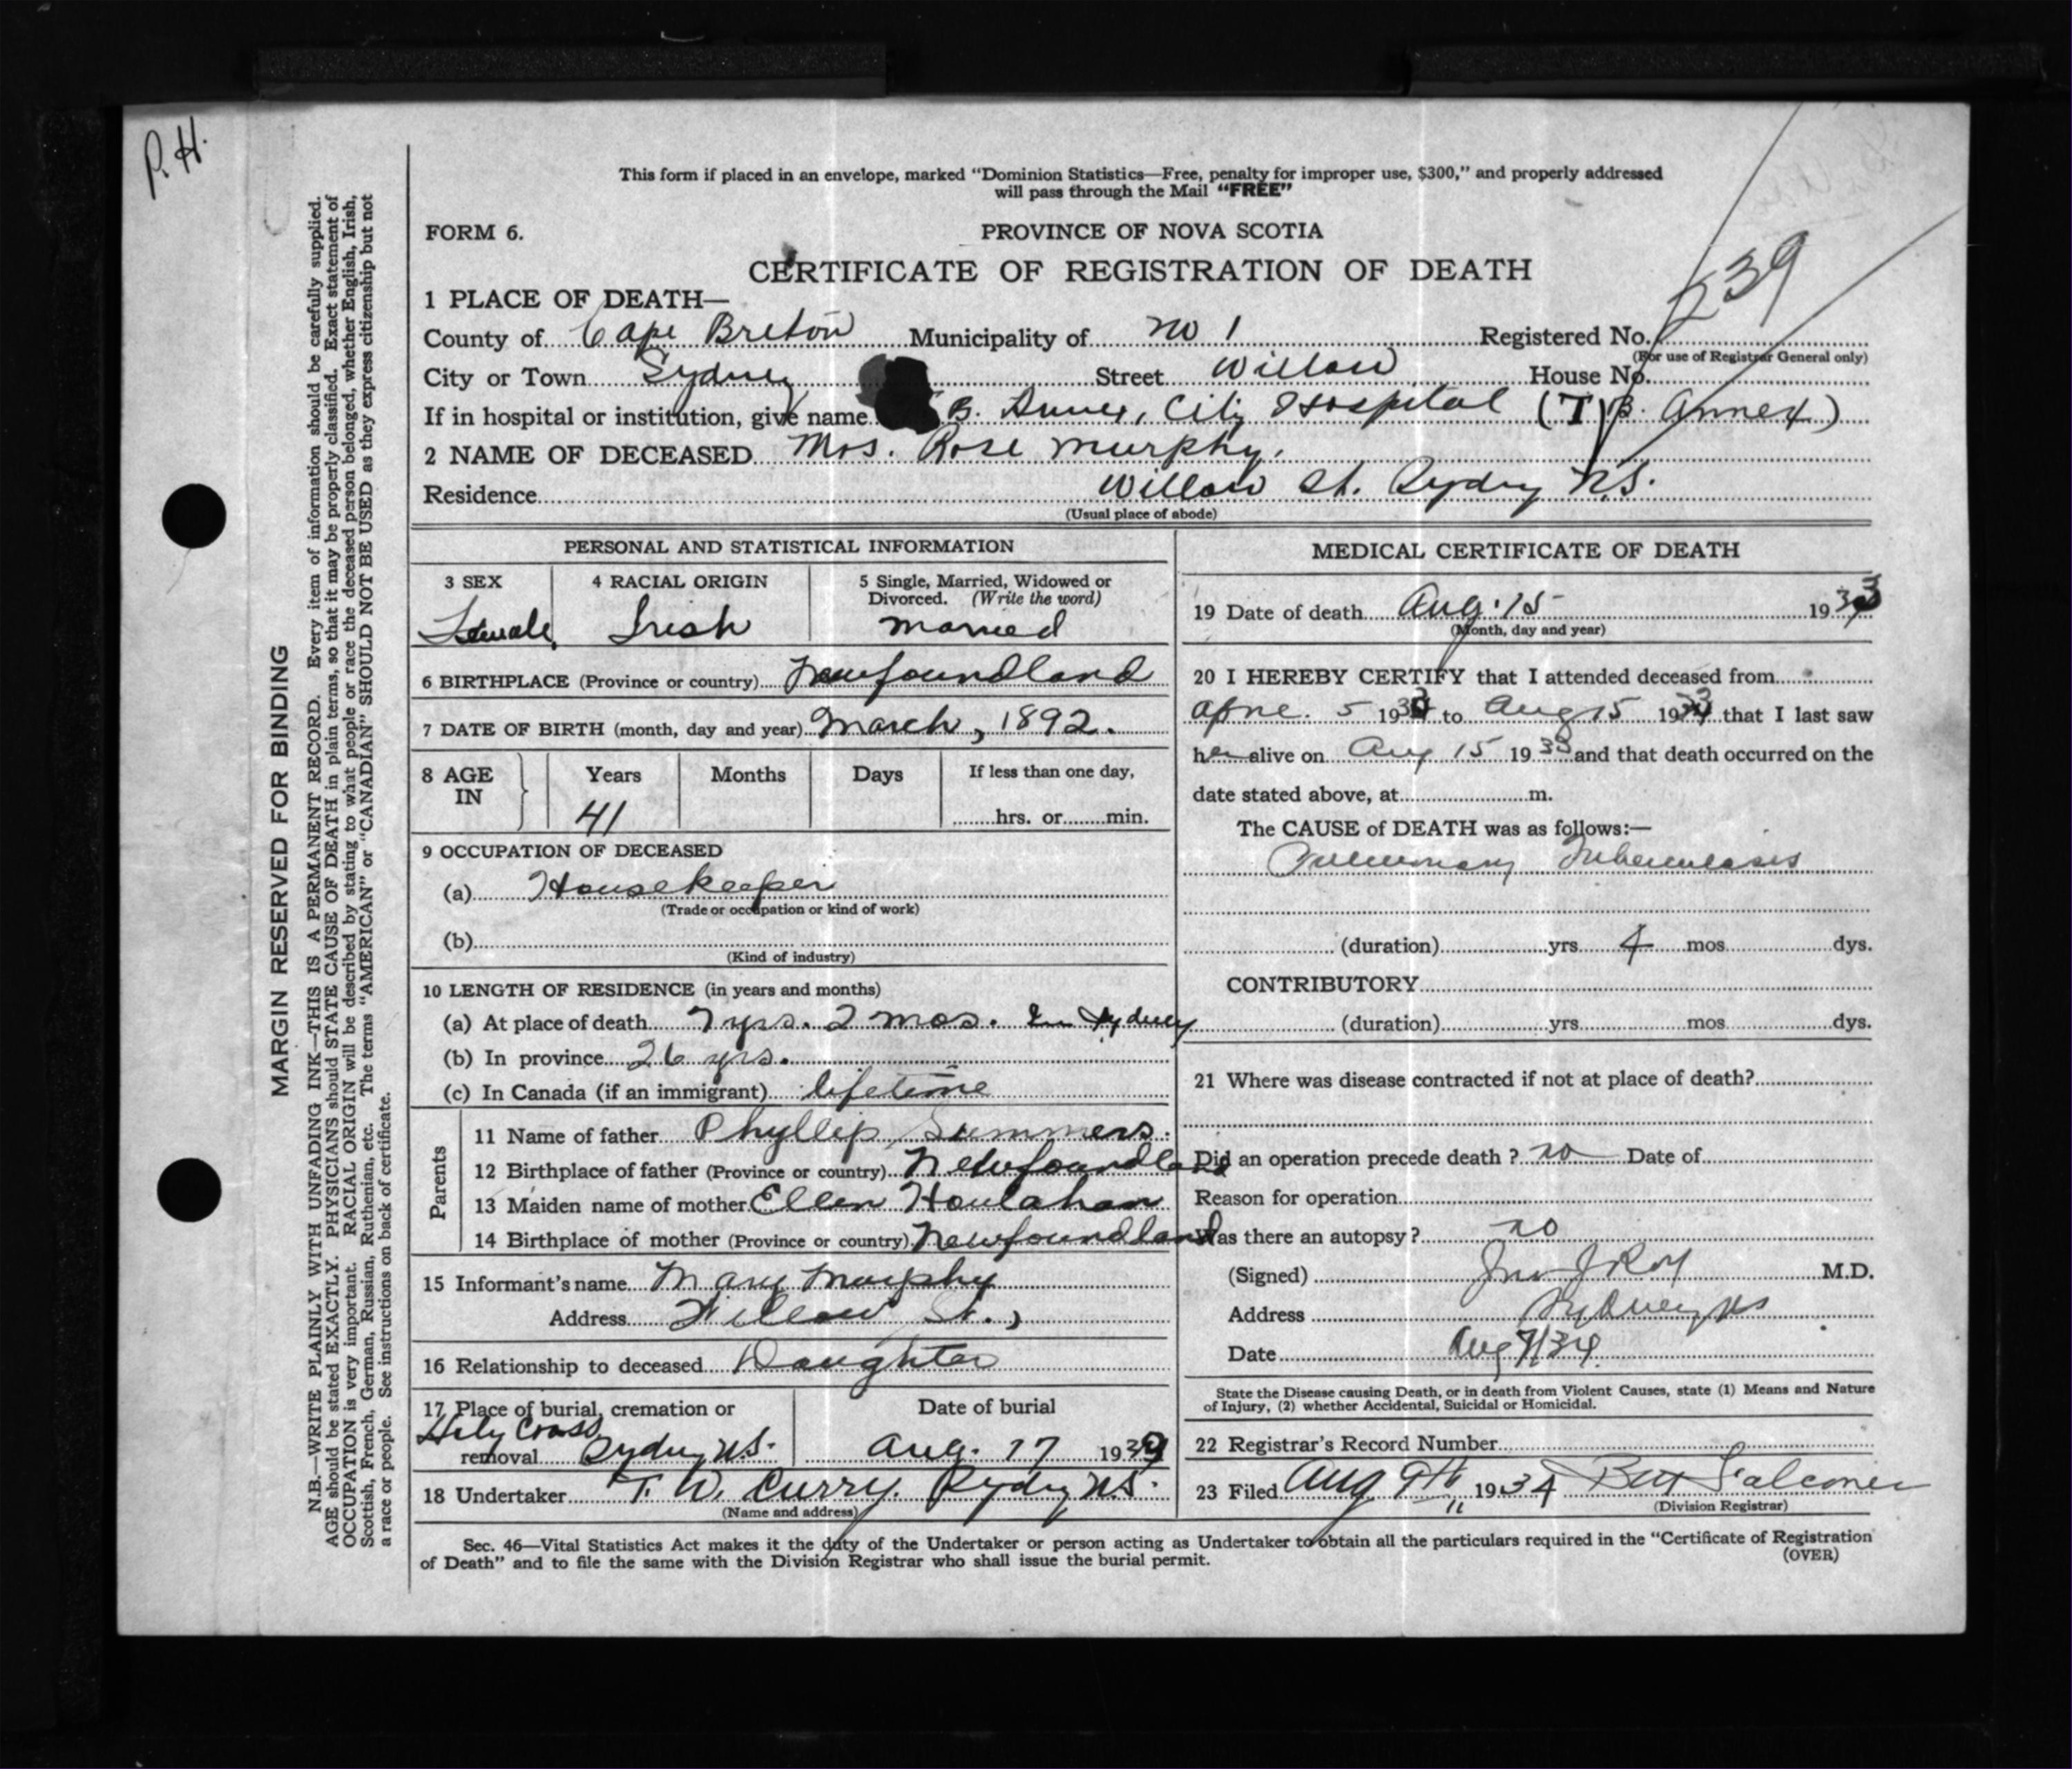 P. H.
This form if placed in an envelope, marked “Dominion Statistics—Free, penalty for improper use, $300,” and properly addressed
will pass through the Mail “FREE”
FORM 6. PROVINCE OF NOVA SCOTIA
CERTIFICATE OF REGISTRATION OF DEATH
539
1 PLACE OF DEATH—
County of Cape Breton Municipality of no 1 Registered No.
(For use of Registrar General only)
City or Town Sydney Street Willow House No.
If in hospital or institution, give name B. Annex, City Hospital (T B. Annex)
2 NAME OF DECEASED Mrs. Rose Murphy.
Residence Willow St. Sydney N.S.
(Usual place of abode)
PERSONAL AND STATISTICAL INFORMATION
3 SEX 4 RACIAL ORIGIN 5 Single, Married, Widowed or
Divorced. (Write the word)
Female Irish Married
6 BIRTHPLACE (Province or country) Newfoundland
7 DATE OF BIRTH (month, day and year) March, 1892.
8 AGE IN Years Months Days If less than one day,
41 hrs. or min.
9 OCCUPATION OF DECEASED
(a) Housekeeper
(Trade or occupation or kind of work)
(b)
(Kind of industry)
10 LENGTH OF RESIDENCE (in years and months)
(a) At place of death 7 yrs. 2 mos. In Sydney
(b) In province 26 yrs.
(c) In Canada (if an immigrant) lifetime
Parents
11 Name of father Phyllip Summers.
12 Birthplace of father (Province or country) Newfoundland
13 Maiden name of mother Ellen Houlahan
14 Birthplace of mother (Province or country) Newfoundland
15 Informant's name Mary Murphy
Address Willow St.,
16 Relationship to deceased Daughter
17 Place of burial, cremation or Date of burial
Holy Cross
removal Sydney N.S. Aug. 17 193
18 Undertaker T. W. Curry. Sydney N.S.
(Name and address)
MEDICAL CERTIFICATE OF DEATH
19 Date of death Aug. 15 1933
(Month, day and year)
20 I HEREBY CERTIFY that I attended deceased from
5 193 to Aug 15 1933 that I last saw
her alive on Aug 15 1933 and that death occurred on the
date stated above, at m.
The CAUSE of DEATH was as follows:—
Pulmonary Tuberculosis
(duration) yrs. 4 mos. dys.
CONTRIBUTORY
(duration) yrs. mos. dys.
21 Where was disease contracted if not at place of death?
Did an operation precede death ? no Date of
Reason for operation
Was there an autopsy ? no
(Signed) Jno J Roy M.D.
Address Sydney NS
Date Aug 7/34
State the Disease causing Death, or in death from Violent Causes, state (1) Means and Nature
of Injury, (2) whether Accidental, Suicidal or Homicidal.
22 Registrar's Record Number
23 Filed Aug 9th 1934 Falconer
(Division Registrar)
Sec. 46—Vital Statistics Act makes it the duty of the Undertaker or person acting as Undertaker to obtain all the particulars required in the “Certificate of Registration
of Death” and to file the same with the Division Registrar who shall issue the burial permit.
(OVER)
MARGIN RESERVED FOR BINDING
N.B.—WRITE PLAINLY WITH UNFADING INK—THIS IS A PERMANENT RECORD. Every item of information should be carefully supplied.
AGE should be stated EXACTLY. PHYSICIANS should STATE CAUSE OF DEATH in plain terms, so that it may be properly classified. Exact statement of
OCCUPATION is very important. RACIAL ORIGIN will be described by stating to what people or race the deceased person belonged, whether English, Irish,
Scottish, French, German, Russian, Ruthenian, etc. The terms “AMERICAN” or “CANADIAN” SHOULD NOT BE USED as they express citizenship but not
a race or people. See instructions on back of certificate.